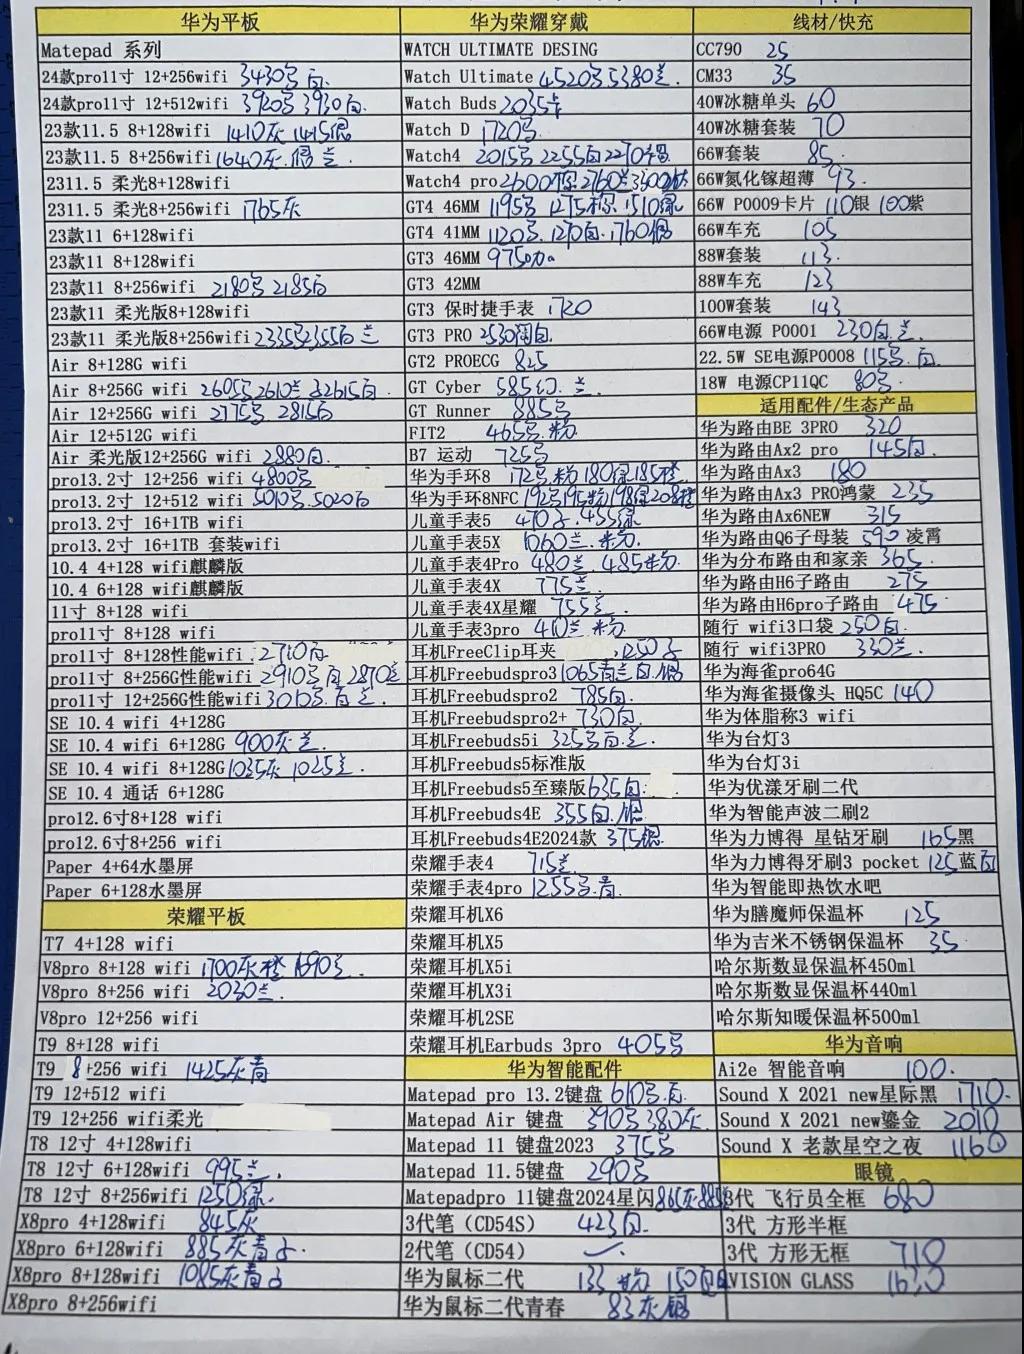 华为平板
Matepad 系列
24款pro11寸 12+256wifi 3430号 白
24款pro11寸 12+512wifi 3920号 3930白.
23款11.5 8+128wifi 1410灰 1415银
23款11.5 8+256wifi 1640灰.银 兰
2311.5 柔光8+128wifi
2311.5 柔光8+256wifi 1765灰
23款11 6+128wifi
23款11 8+128wifi
23款11 8+256wifi 2180号 2185白
23款11 柔光版8+128wifi
23款11 柔光版8+256wifi 2335号2355白 兰
Air 8+128G wifi
Air 8+256G wifi 2605号2610兰 2615白
Air 12+256G wifi 2775号 2815白
Air 12+512G wifi
Air 柔光版12+256G wifi 2880白.
pro13.2寸 12+256 wifi 4800号
pro13.2寸 12+512 wifi 5010号.5020白
pro13.2寸 16+1TB wifi
pro13.2寸 16+1TB 套装wifi
10.4 4+128 wifi麒麟版
10.4 6+128 wifi麒麟版
11寸 8+128 wifi
pro11寸 8+128 wifi
pro11寸 8+128性能wifi 2710白
pro11寸 8+256G性能wifi 2910号 白 2870兰
pro11寸 12+256G性能wifi 3010号.白 兰.
SE 10.4 wifi 4+128G
SE 10.4 wifi 6+128G 900灰 兰.
SE 10.4 wifi 8+128G 1035灰 1025兰.
SE 10.4 通话 6+128G
pro12.6寸8+128 wifi
pro12.6寸8+256 wifi
Paper 4+64水墨屏
Paper 6+128水墨屏
荣耀平板
T7 4+128 wifi
V8pro 8+128 wifi 1700灰橙 1690兰.
V8pro 8+256 wifi 2030兰.
V8pro 12+256 wifi
T9 8+128 wifi
T9 8+256 wifi 1425灰青
T9 12+512 wifi
T9 12+256 wifi柔光
T8 12寸 4+128wifi
T8 12寸 6+128wifi 995兰.
T8 12寸 8+256wifi 1250绿.
X8pro 4+128wifi 845灰
X8pro 6+128wifi 885灰青
X8pro 8+128wifi 1085灰青
X8pro 8+256wifi
华为荣耀穿戴
WATCH ULTIMATE DESING
Watch Ultimate 4520号5380兰.
Watch Buds 2035卡
Watch D 1720号
Watch4 2015号 2255白2270棕.
Watch4 pro 2600棕2760兰3300钛
GT4 46MM 1195号 1275棕.1510绿
GT4 41MM 1120号.1270白.1760银
GT3 46MM 975
GT3 42MM
GT3 保时捷手表 1720
GT3 PRO 2530陶白.
GT2 PROECG 825
GT Cyber 585幻.兰.
GT Runner 885号
FIT2 465号.粉
B7 运动 725号
华为手环8 172号.粉180绿185橙
华为手环8NFC 192号195粉198绿208橙
儿童手表5
儿童手表5X 1060兰.粉.
儿童手表4Pro 480兰.485粉.
儿童手表4X 775兰
儿童手表4X星耀 755兰.
儿童手表3pro 410兰.粉
耳机FreeClip耳夹 1250
耳机Freebudspro3 1065青兰白.银
耳机Freebudspro2 785白.
耳机Freebudspro2+ 730白.
耳机Freebuds5i 325号白.兰.
耳机Freebuds5标准版
耳机Freebuds5至臻版635白.
耳机Freebuds4E 355白.银
耳机Freebuds4E2024款 375银.
荣耀手表4 715兰.
荣耀手表4pro 1255号.青.
荣耀耳机X6
荣耀耳机X5
荣耀耳机X5i
荣耀耳机X3i
荣耀耳机2SE
荣耀耳机Earbuds 3pro 405号
华为智能配件
Matepad pro 13.2键盘 610号.白
Matepad Air 键盘 390号 380灰.
Matepad 11 键盘2023 375号
Matepad 11.5键盘 290号
Matepadpro 11键盘2024星闪865灰885
3代笔（CD54S） 423白.
2代笔（CD54）
华为鼠标二代 133 粉 150白
华为鼠标二代青春 83灰 银
线材/快充
CC790 25
CM33 35
40W冰糖单头 60
40W冰糖套装 70
66W套装 85.
66W氮化镓超薄 93.
66W P0009卡片 110银 100紫
66W车充 105
88W套装 113.
88W车充 123
100W套装 143
66W电源 P0001 230白.兰.
22.5W SE电源P0008 115号.白
18W 电源CP11QC 80号.
适用配件/生态产品
华为路由BE 3PRO 320
华为路由Ax2 pro 145白.
华为路由Ax3 180
华为路由Ax3 PRO鸿蒙 235
华为路由Ax6NEW 315
华为路由Q6子母装 590 凌霄
华为分布路由和家亲 365.
华为路由H6子路由 275
华为路由H6pro子路由 475
随行 wifi3口袋 250白
随行 wifi3PRO 330兰.
华为海雀pro64G
华为海雀摄像头 HQ5C 140
华为体脂称3 wifi
华为台灯3
华为台灯3i
华为优漾牙刷二代
华为智能声波二刷2
华为力博得 星钻牙刷 165黑
华为力博得牙刷3 pocket 125蓝白
华为智能即热饮水吧
华为膳魔师保温杯 125
华为吉米不锈钢保温杯 35.
哈尔斯数显保温杯450ml
哈尔斯数显保温杯440ml
哈尔斯知暖保温杯500ml
华为音响
Ai2e 智能音响 100.
Sound X 2021 new星际黑 1710.
Sound X 2021 new鎏金 2010
Sound X 老款星空之夜 1160
眼镜
3代 飞行员全框 680
3代 方形半框
3代 方形无框 710
VISION GLASS 1630